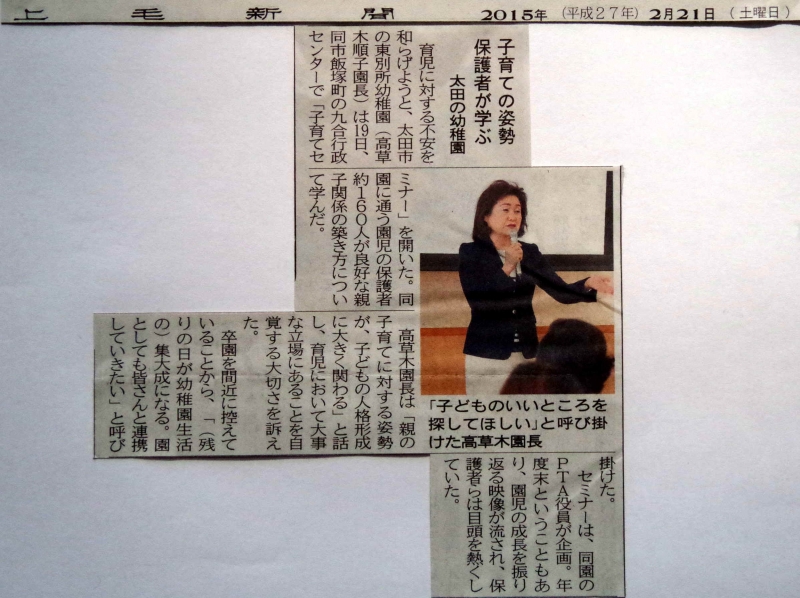 上毛新聞 2015年 (平成27年) 2月21日 (土曜日)
子育ての姿勢
保護者が学ぶ
太田の幼稚園
育児に対する不安を
和らげようと、太田市
の東別所幼稚園（高草
木順子園長）は19日、
同市飯塚町の九合行政
センターで「子育てセ
ミナー」を開いた。同
園に通う園児の保護者
約160人が良好な親
子関係の築き方につい
て学んだ。
高草木園長は「親の
子育てに対する姿勢
が、子どもの人格形成
に大きく関わる」と話
し、育児において大事
な立場にあることを自
覚する大切さを訴え
た。
卒園を間近に控えて
いることから、「（残
りの日が幼稚園生活
の）集大成になる。園
としても皆さんと連携
していきたい」と呼び
掛けた。
セミナーは、同園の
PTA役員が企画。年
度末ということもあ
り、園児の成長を振り
返る映像が流され、保
護者らは目頭を熱くし
ていた。
「子どものいいところを
探してほしい」と呼び掛
けた高草木園長